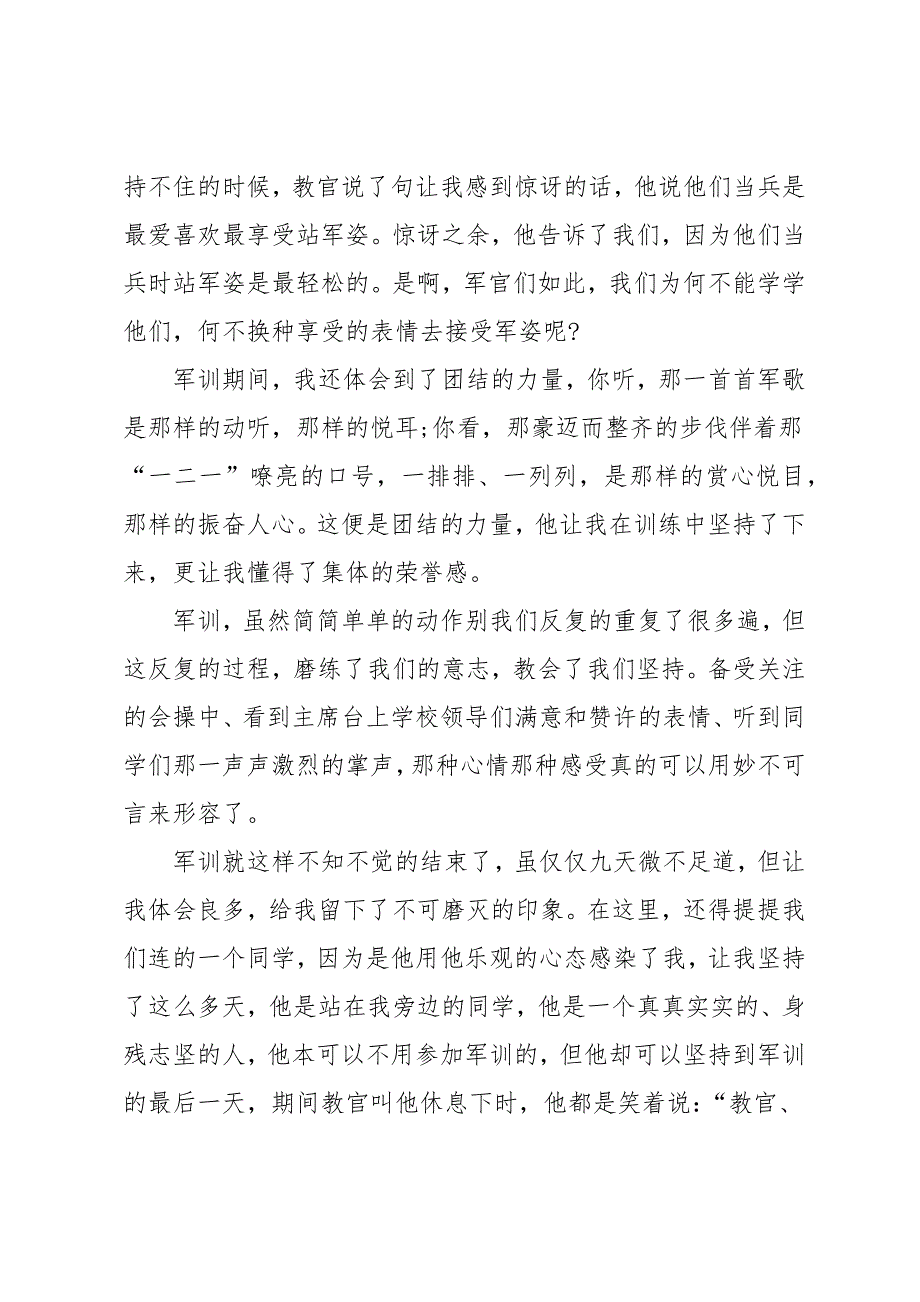 持不住的时候，教官说了句让我感到惊讶的话，他说他们当兵是
最爱喜欢最享受站军姿。惊讶之余，他告诉了我们，因为他们当
兵时站军姿是最轻松的。是啊，军官们如此，我们为何不能学学
他们，何不换种享受的表情去接受军姿呢?
军训期间，我还体会到了团结的力量，你听，那一首首军歌
是那样的动听，那样的悦耳;你看，那豪迈而整齐的步伐伴着那
“一二一”嘹亮的口号，一排排、一列列，是那样的赏心悦目，
那样的振奋人心。这便是团结的力量，他让我在训练中坚持了下
来，更让我懂得了集体的荣誉感。
军训，虽然简简单单的动作别我们反复的重复了很多遍，但
这反复的过程，磨练了我们的意志，教会了我们坚持。备受关注
的会操中、看到主席台上学校领导们满意和赞许的表情、听到同
学们那一声声激烈的掌声，那种心情那种感受真的可以用妙不可
言来形容了。
军训就这样不知不觉的结束了，虽仅仅九天微不足道，但让
我体会良多，给我留下了不可磨灭的印象。在这里，还得提提我
们连的一个同学，因为是他用他乐观的心态感染了我，让我坚持
了这么多天，他是站在我旁边的同学，他是一个真真实实的、身
残志坚的人，他本可以不用参加军训的，但他却可以坚持到军训
的最后一天，期间教官叫他休息下时，他都是笑着说：“教官、